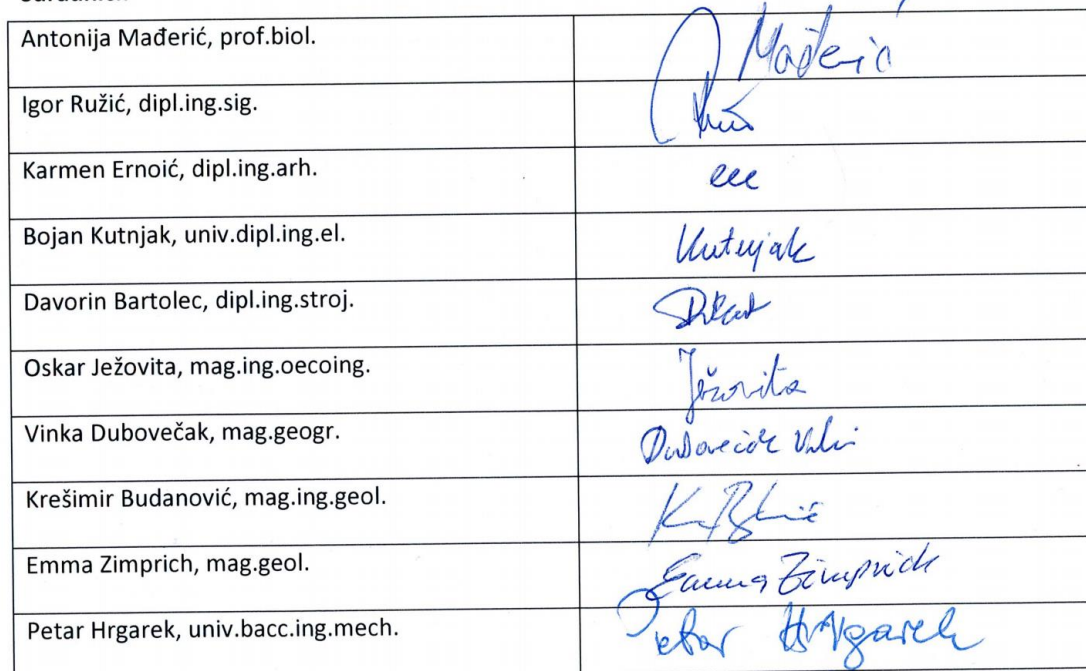 Antonija Mađerić, prof.biol. Mađerić
Igor Ružić, dipl.ing.sig.
Karmen Ernoić, dipl.ing.arh. eee
Bojan Kutnjak, univ.dipl.ing.el. Kutnjak
Davorin Bartolec, dipl.ing.stroj.
Oskar Ježovita, mag.ing.oecoing. Ježovita
Vinka Dubovečak, mag.geogr. Dubovečak
Krešimir Budanović, mag.ing.geol.
Emma Zimprich, mag.geol. Emma Zimprich
Petar Hrgarek, univ.bacc.ing.mech. Petar Hrgarek